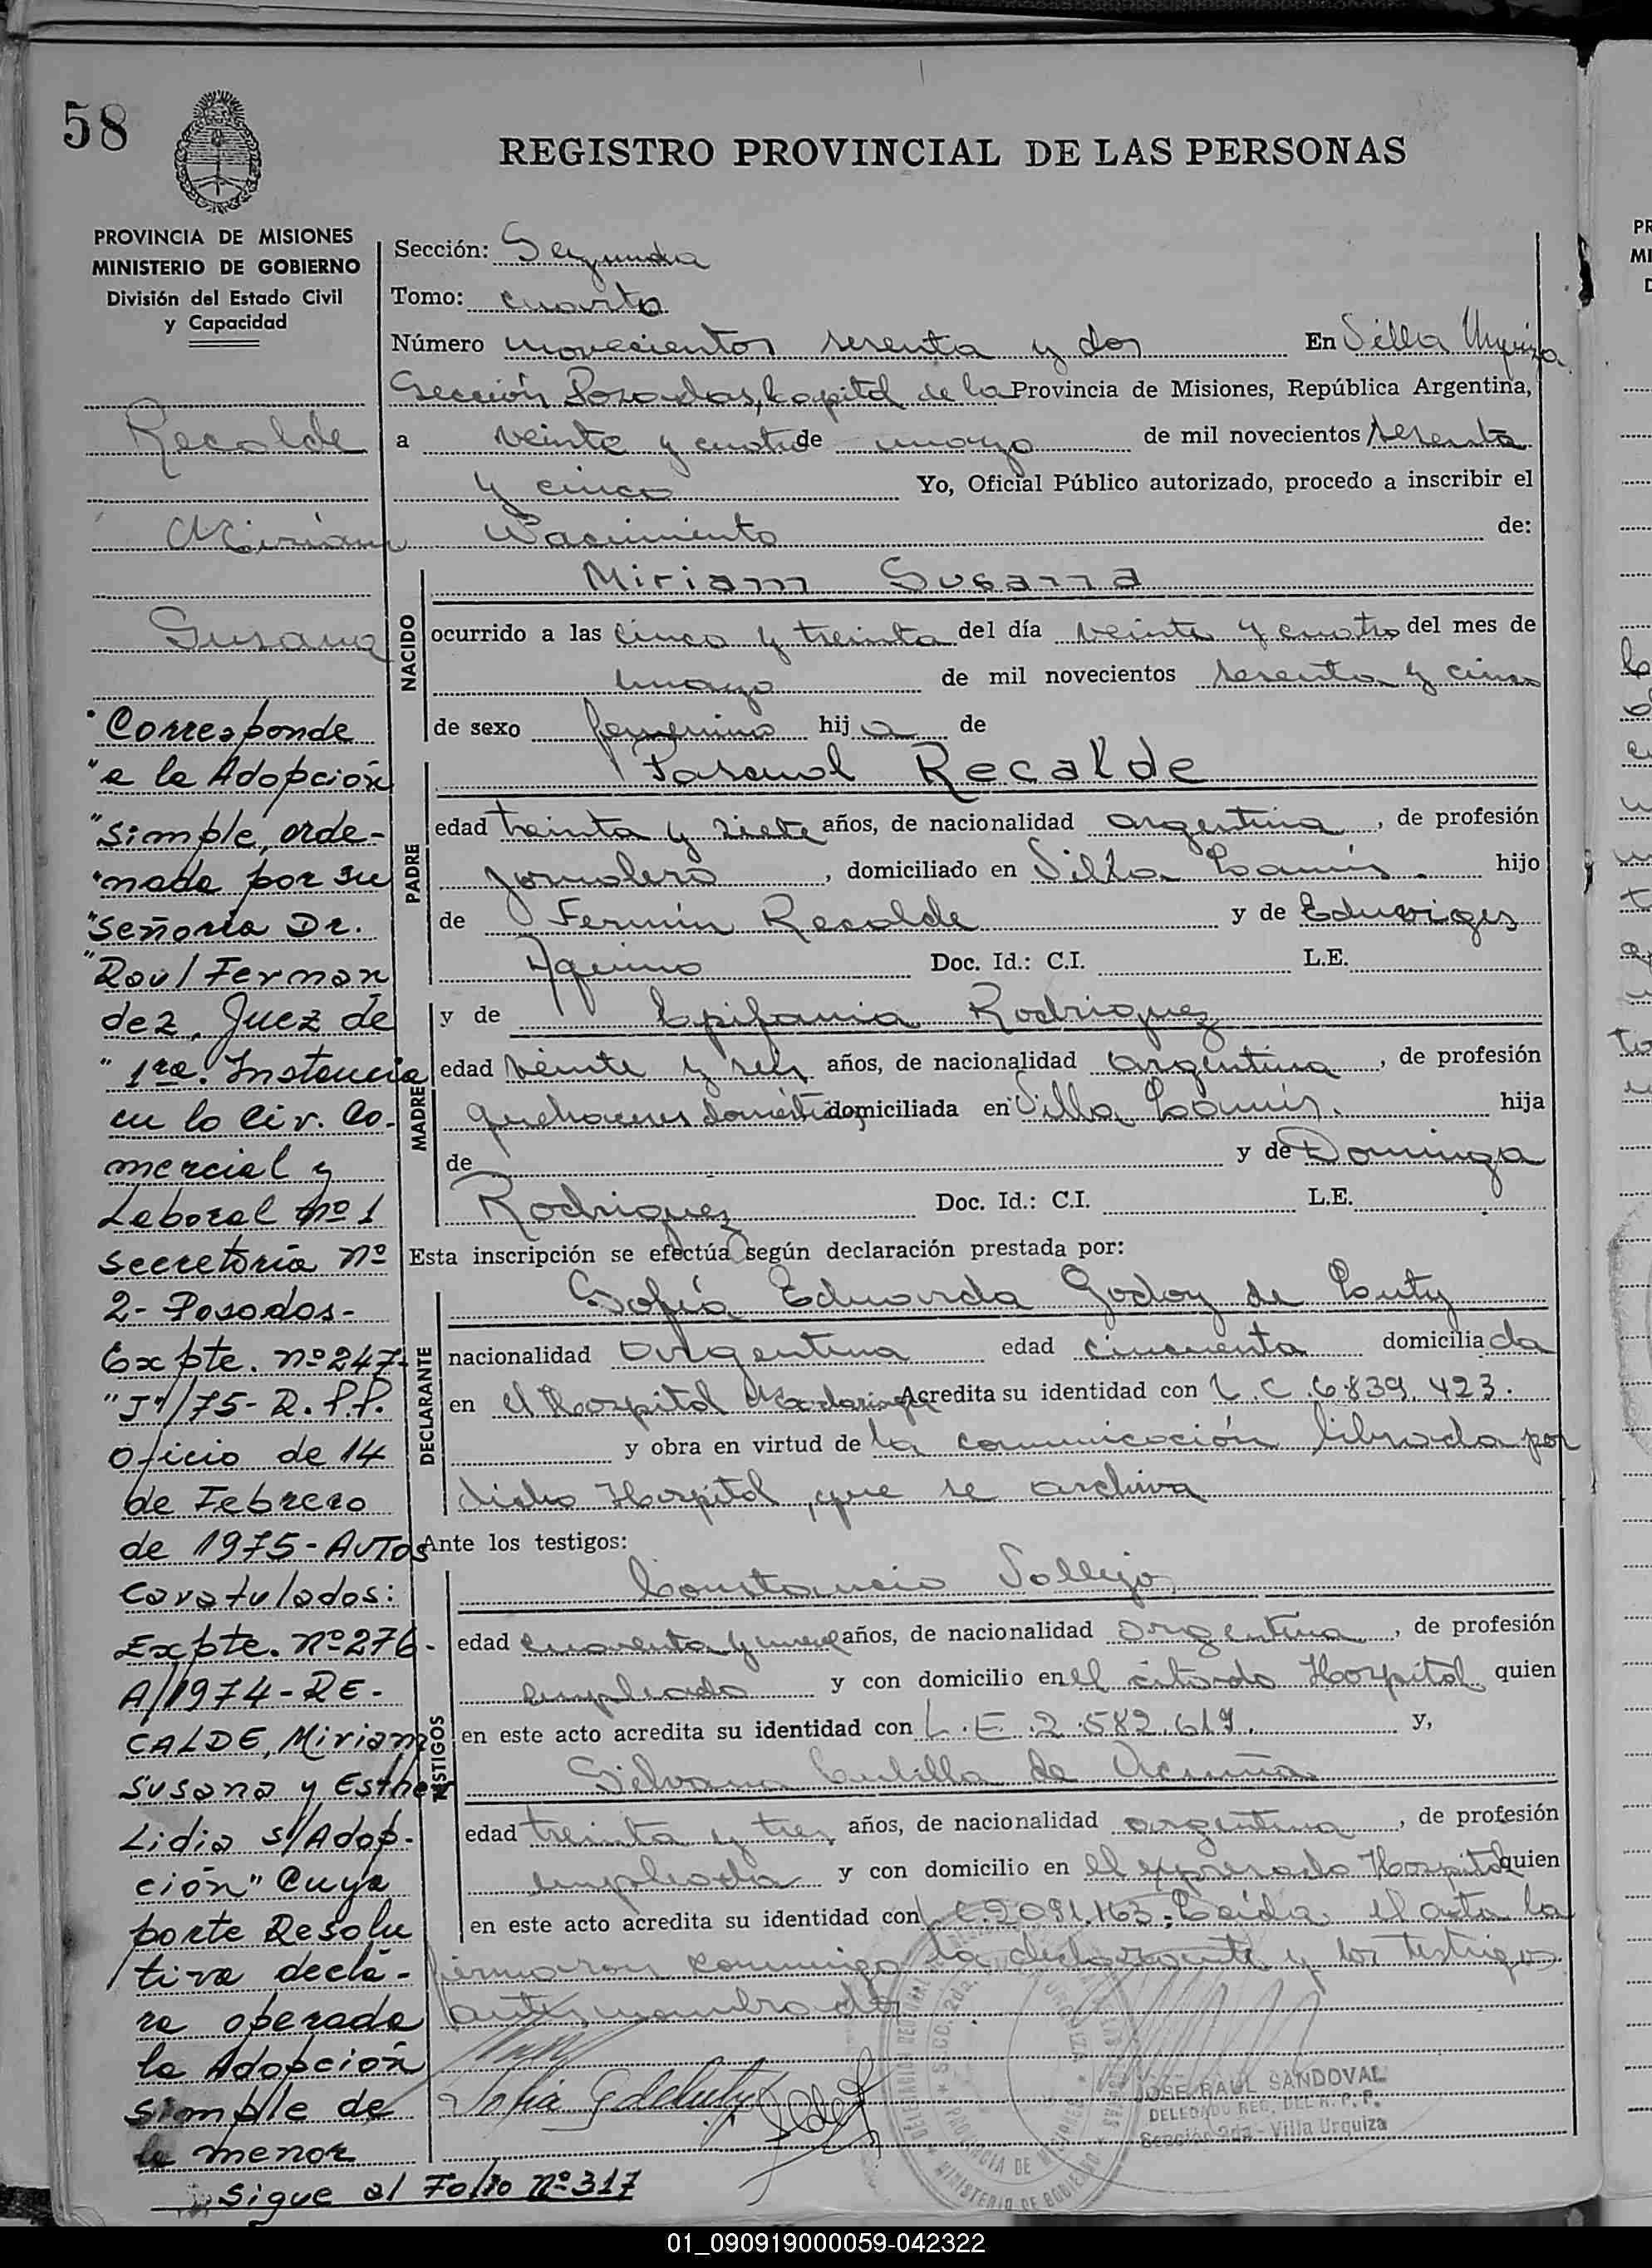 58
REGISTRO PROVINCIAL DE LAS PERSONAS
PROVINCIA DE MISIONES
MINISTERIO DE GOBIERNO
División del Estado Civil
y Capacidad
Recalde
Miriam
Susana
"Corresponde
"a la Adopción
"simple, orde-
"nada por su
"Señoría Dr.
"Raul Fernan
dez, Juez de
"1ra. Instancia
en lo Civ. Co-
mercial y
Laboral nº 1
secretoría nº
2- Posadas-
Expte. nº 247-
"J"/75- R.P.P.
Oficio de 14
de Febrero
de 1975- AUTOS
Caratulados:
Expte. nº 276-
A/1974-RE-
CALDE, Miriam
Susana y Esther
Lidia s/Adop-
ción" Cuya
parte Resolu
tiva decla-
ra operada
la Adopción
simple de
la menor
Sigue al Folio nº 317
Sección: Segunda
Tomo: cuarto
Número novecientos sesenta y dos En Villa Urquiza
Sección Posadas, Capital de la Provincia de Misiones, República Argentina,
a veinte y cuatro de mayo de mil novecientos sesenta
y cinco Yo, Oficial Público autorizado, procedo a inscribir el
Nacimiento de:
NACIDO
Miriam Susana
ocurrido a las cinco y treinta del día veinte y cuatro del mes de
mayo de mil novecientos sesenta y cinco
de sexo femenino hija de
PADRE
Pascual Recalde
edad treinta y siete años, de nacionalidad argentina, de profesión
jornalero, domiciliado en Villa Lanús. hijo
de Fermín Recalde y de Eduviges
Aquino Doc. Id.: C.I. L.E.
MADRE
y de Epifania Rodriguez
edad veinte y seis años, de nacionalidad argentina, de profesión
quehaceres domésticos, domiciliada en Villa Lanús. hija
de y de Dominga
Rodriguez Doc. Id.: C.I. L.E.
Esta inscripción se efectúa según declaración prestada por:
DECLARANTE
Sofía Eduarda Godoy de Luty
nacionalidad argentina edad cincuenta domiciliada
en el Hospital Madariaga Acredita su identidad con L.C. 6.839.423.
y obra en virtud de la comunicación librada por
dicho Hospital, que se archiva
Ante los testigos:
TESTIGOS
Constancio Vallejo
edad cuarenta y nueve años, de nacionalidad argentina, de profesión
empleado y con domicilio en el citado Hospital quien
en este acto acredita su identidad con L.E. 2.582.619. y,
Silvana de Acuña
edad treinta y tres años, de nacionalidad argentina, de profesión
empleada y con domicilio en el expresado Hospital quien
en este acto acredita su identidad con L.C. 2091.163. Leída el acta la
firmaron conmigo la declarante y los testigos
antes nombrados
JOSE RAUL SANDOVAL
DELEGADO REG. DEL R. P. P.
Sección 2da - Villa Urquiza
PROVINCIA DE MISIONES
MINISTERIO DE GOBIERNO
01_090919000059-042322